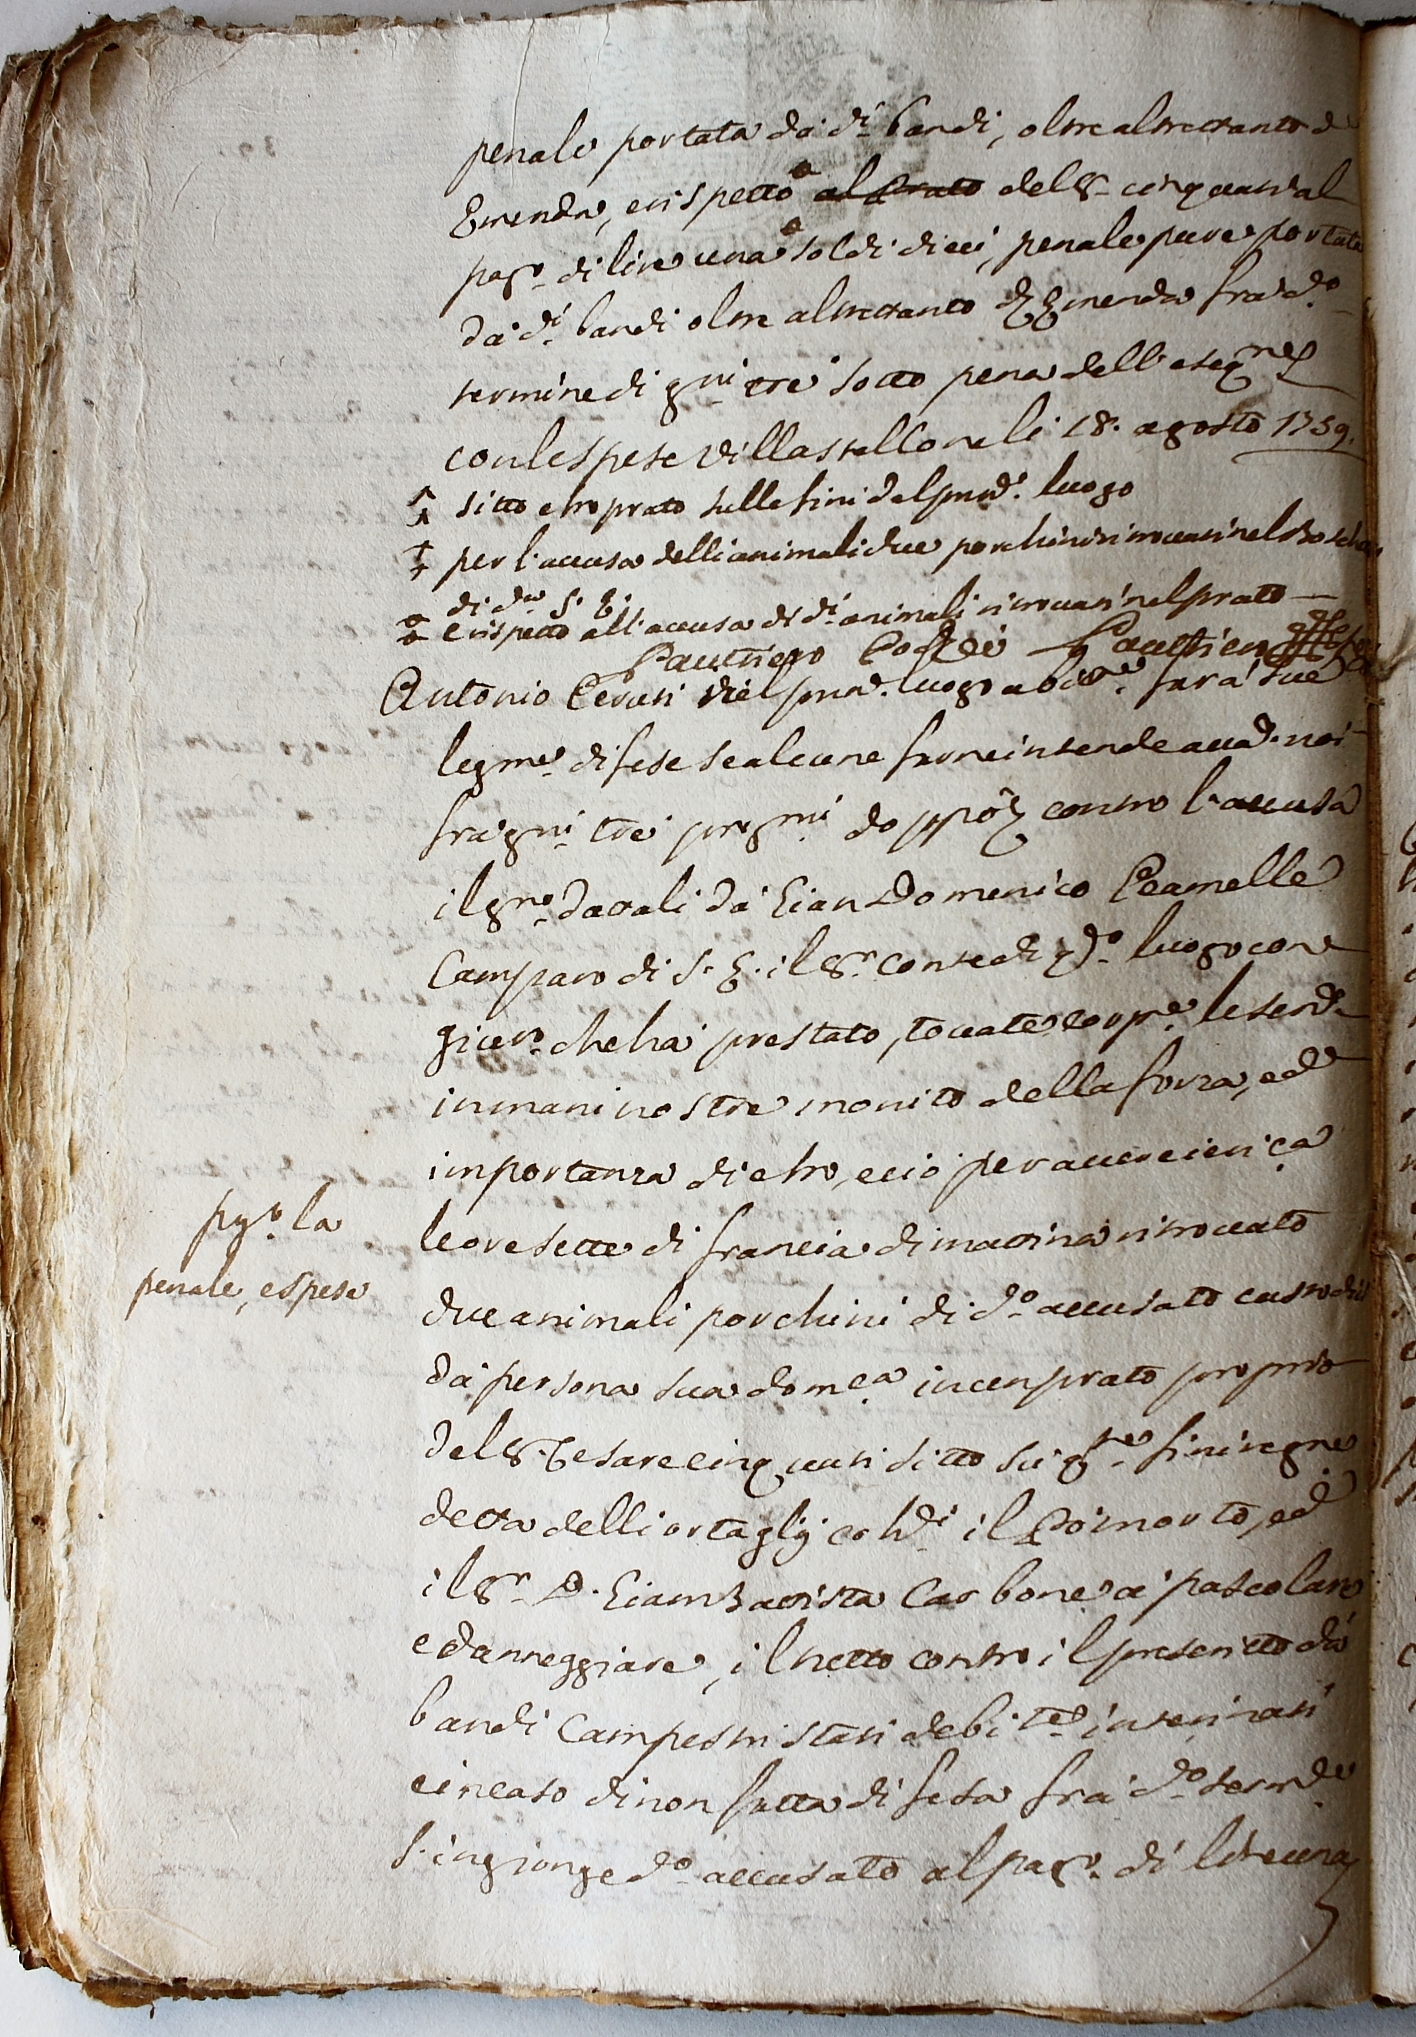 penale portata da d.i bandi, oltre altrettanto d
Emenda, e rispetto al Prato del S.r Cinquanti al
pag.to di lire una soldi dieci, penale pure portata
da d.i bandi oltre altrettanto d'Emenda fra d.o
termine di g.ni tre sotto pena dell'eseq.ne
con le spese Villastellone li 18. agosto 1759.
sitto etro prato sulle fini del pnd.o luogo
per l'accusa delli animali due porchini ritrovati nel Boscho
di d.a S. E.
e rispetto all'accusa di d.i animali ritrovati nel prato
Antonio Cerutti del pnd.o luogo abit.e farà sue
legme. difese se alcune farne intende avad. noi
fra g.ni tre prosmi doppo contro l'accusa
il gno. datali da Gian Domenico
Camparo di S. E. il S.r Conte di q.do luogo con
giur.o che ha prestato, toccate corp.e le
in mani nostre monito della forza, ed
importanza d'etro, e ciò per avere ieri ca
le ore sette di francia di mattina ritrovato
pag.o la
penale, e spese
due animali porchini di d.o accusato custoditi
da persona sua dom.ca in un prato proprio
del S. Cesare Cinquanti sitto su q.te fini regne
detta delli ortaglij coh.di il Pò morto, ed
il S.r D. Giam Battista Carbone a pascolare
e danneggiare, il tutto contro il prescritto da
bandi Campestri stati debit.e interinati
e in caso di non fatta difesa fra d.o
s'ingionge d.o accusato al pag.to di lire una